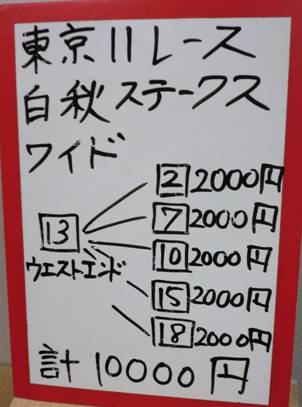 東京11レース
白秋ステークス
ワイド
13
ウエストエンド
2 2000円
7 2000円
10 2000円
15 2000円
18 2000円
計 10000円